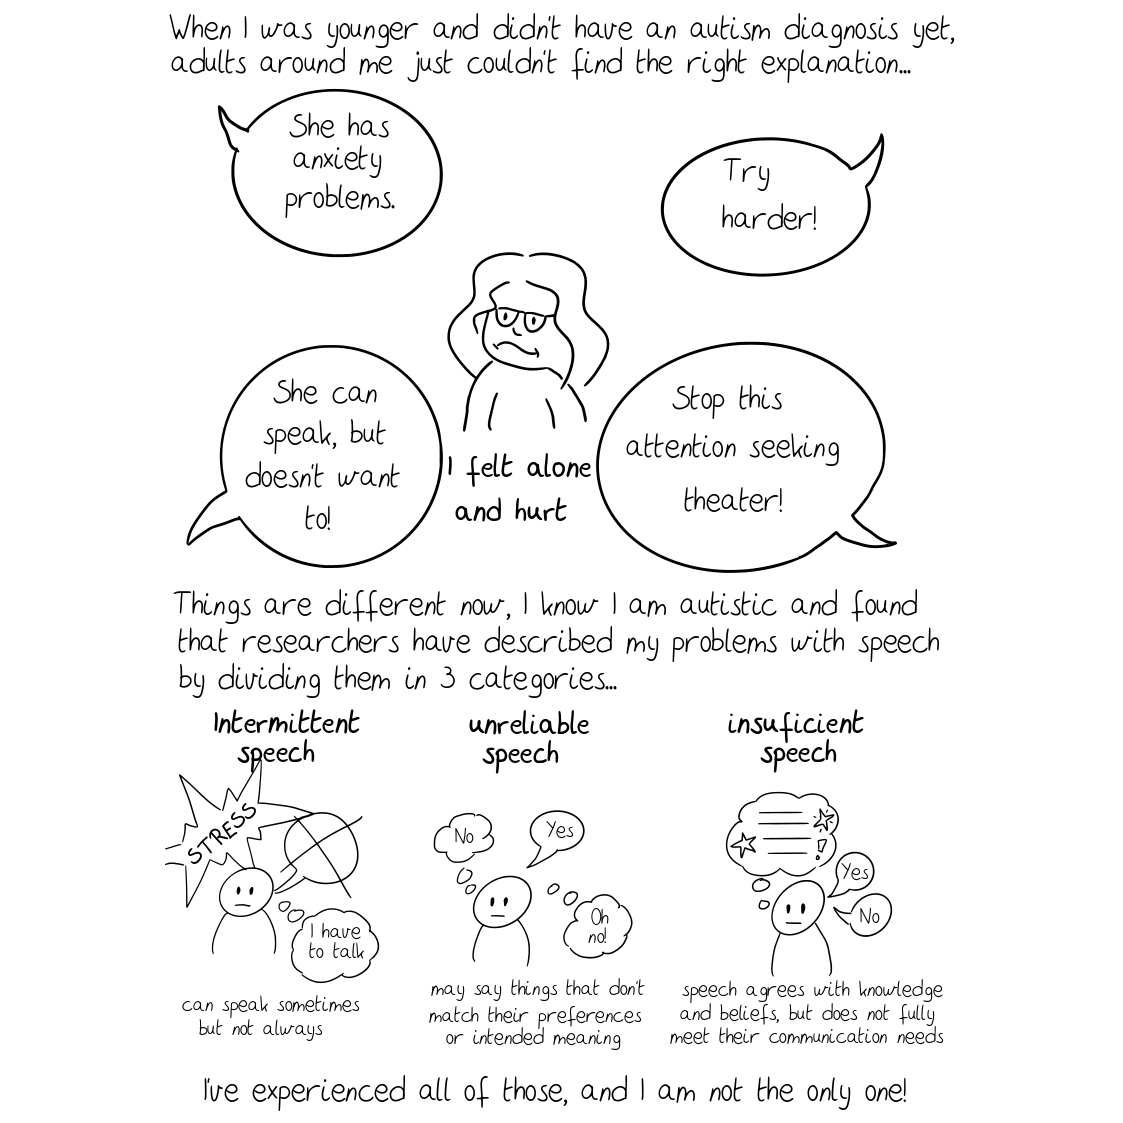 When I was younger and didn't have an autism diagnosis yet,
adults around me just couldn't find the right explanation...
She has
anxiety
problems.
Try
harder!
She can
speak, but
doesn't want
to!
Stop this
attention seeking
theater!
I felt alone
and hurt
Things are different now, I know I am autistic and found
that researchers have described my problems with speech
by dividing them in 3 categories...
Intermittent
speech
STRESS
I have
to talk
can speak sometimes
but not always
unreliable
speech
No
Yes
Oh
no!
may say things that don't
match their preferences
or intended meaning
insuficient
speech
!
Yes
No
speech agrees with knowledge
and beliefs, but does not fully
meet their communication needs
I've experienced all of those, and I am not the only one!